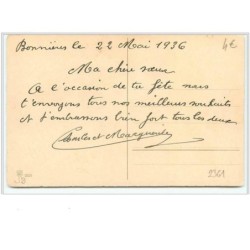 Bonnières le 22 Mai 1936
4€
Ma chère sœur
A l'occasion de ta fête nous
t'envoyons tous nos meilleurs souhaits
et t'embrassons bien fort tous les deux
Charles et Marguerite
2361